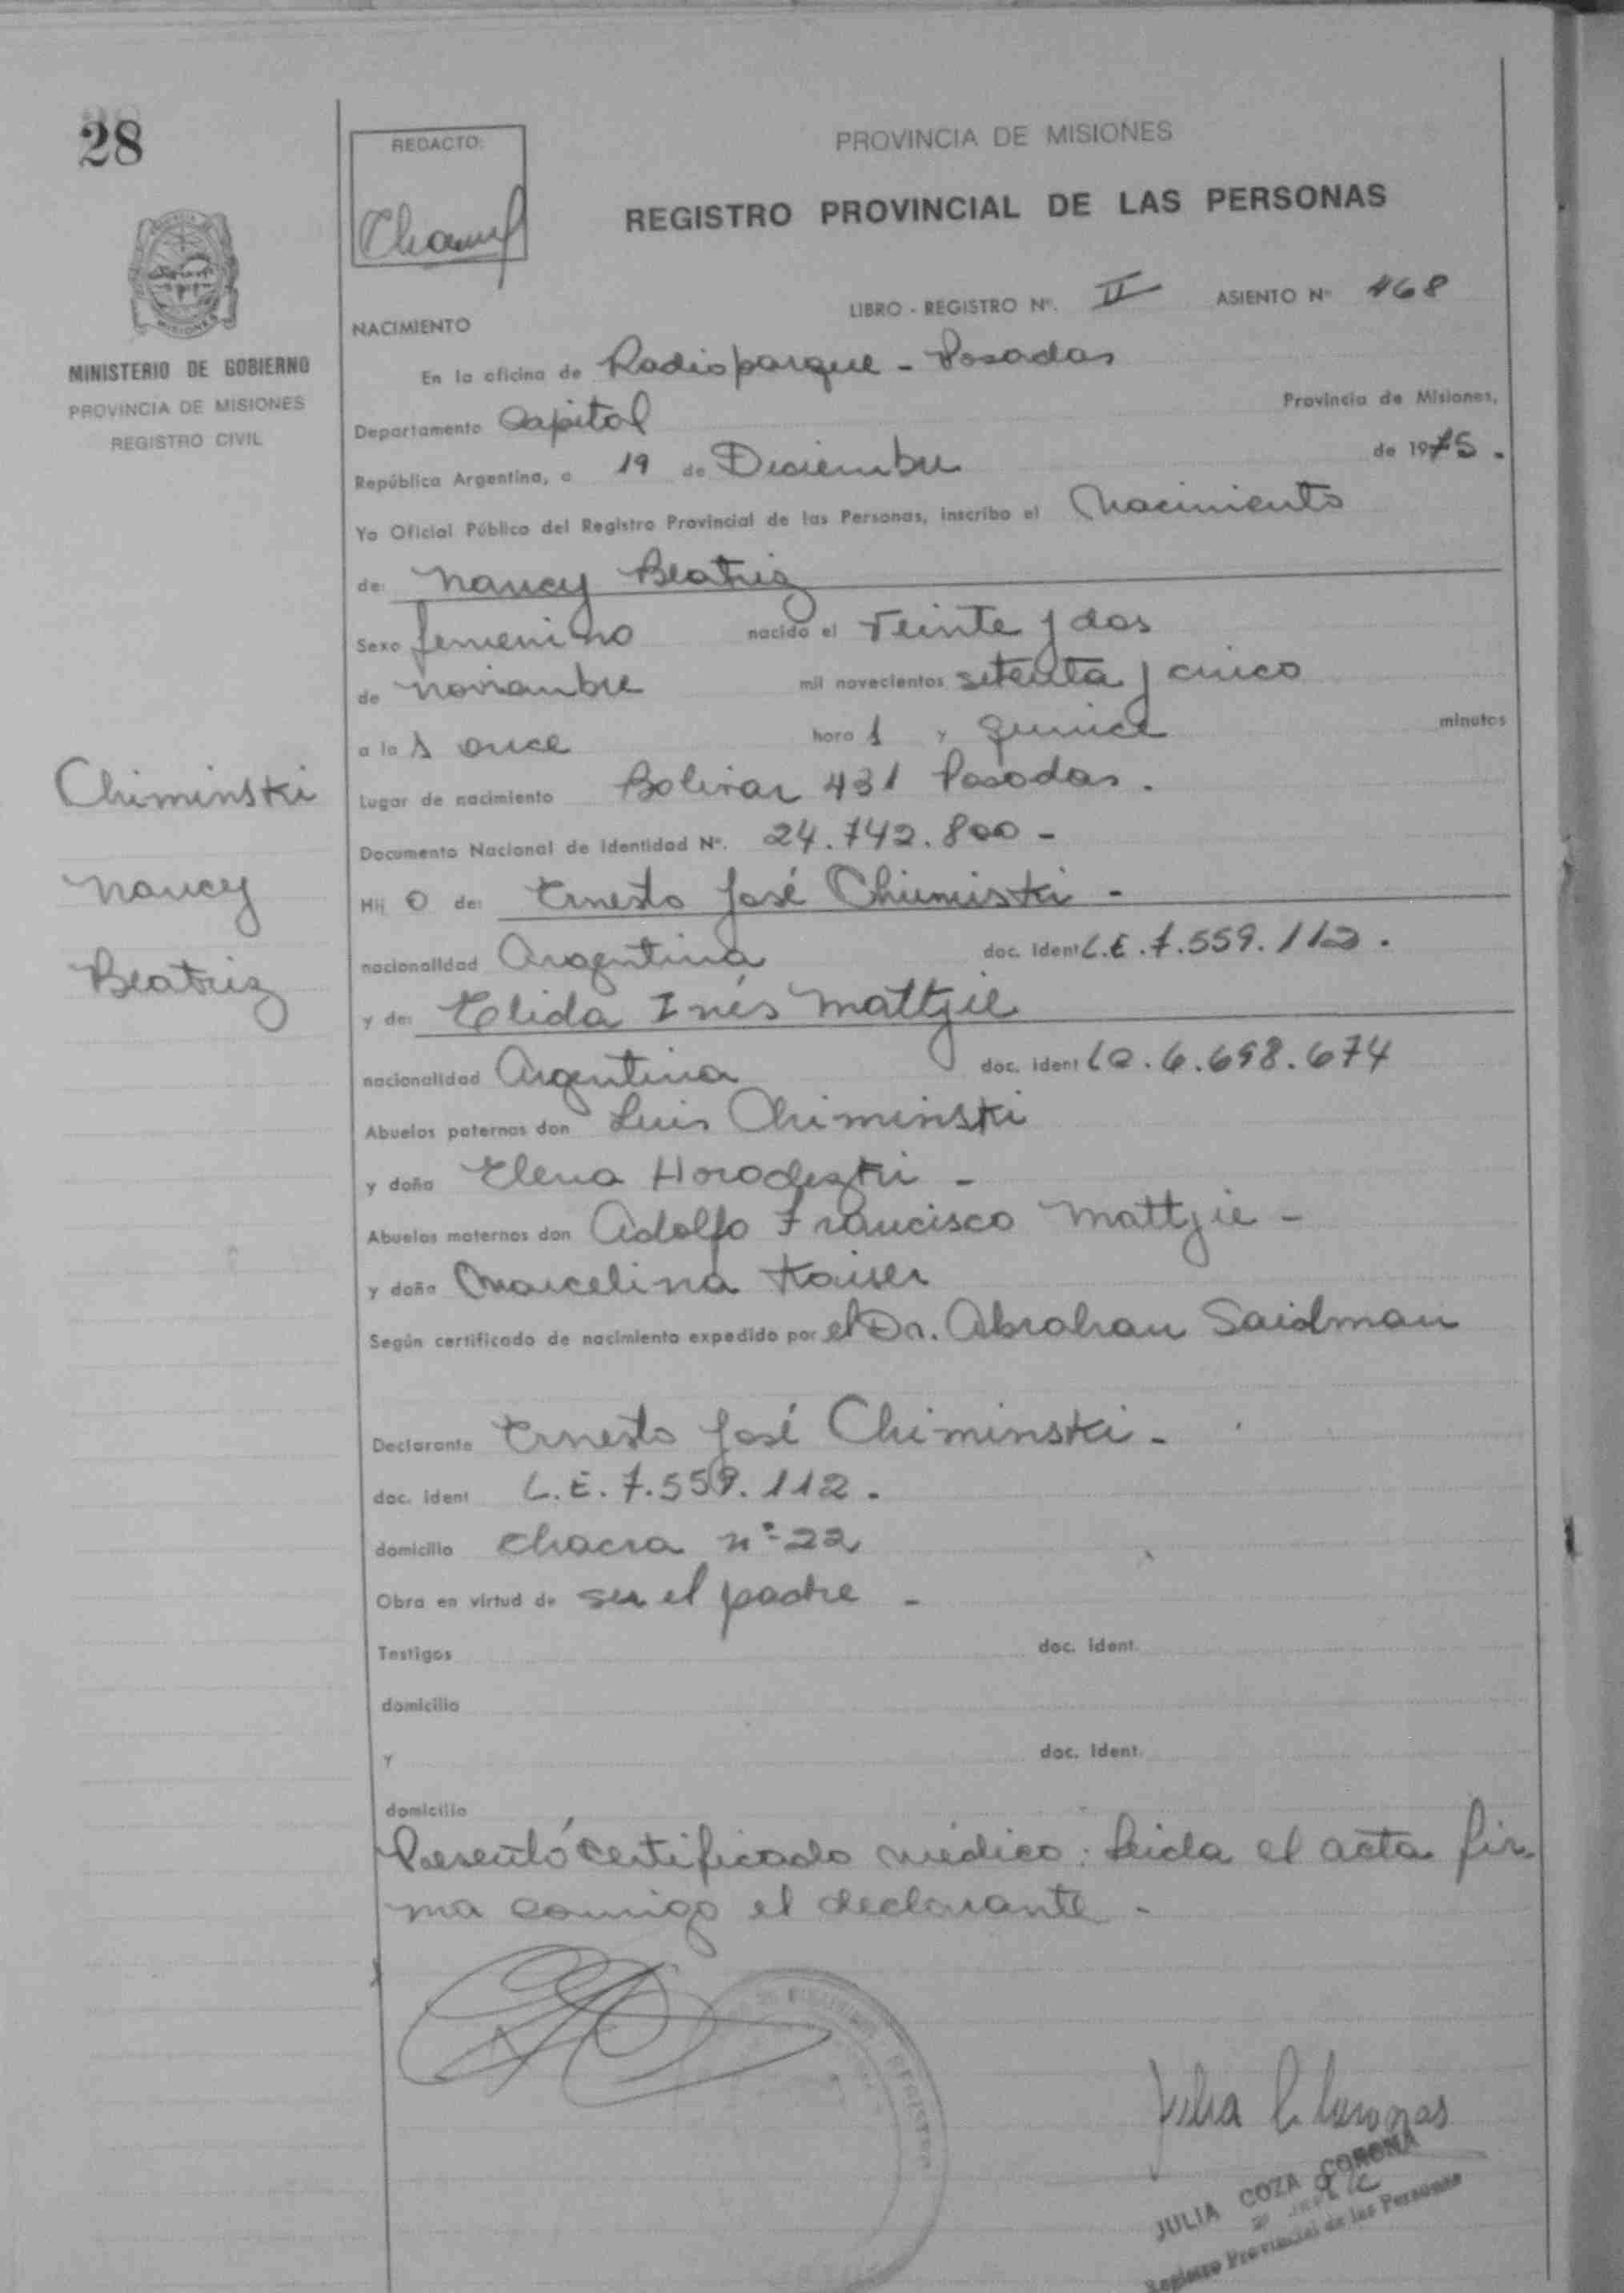 28
REDACTO:
PROVINCIA DE MISIONES
REGISTRO PROVINCIAL DE LAS PERSONAS
LIBRO - REGISTRO Nº. II ASIENTO Nº 468
MISIONES
MINISTERIO DE GOBIERNO
PROVINCIA DE MISIONES
REGISTRO CIVIL
NACIMIENTO
En la oficina de Radioparque - Posadas
Departamento Capital Provincia de Misiones,
República Argentina, a 19 de Diciembre de 1975.
Yo Oficial Público del Registro Provincial de las Personas, inscribo el Nacimiento
de: Nancy Beatriz
Sexo femenino nacido el veinte y dos
de noviembre mil novecientos setenta y cinco
a la s once hora s y quince minutos
Chiminski
Nancy
Beatriz
Lugar de nacimiento Bolivar 431 Posadas.
Documento Nacional de Identidad Nº. 24.742.800 -
Hij o de: Ernesto José Chiminski -
nacionalidad Argentina doc. ident L.E. 7.559.112.
y de: Elida Inés Mattjie
nacionalidad Argentina doc. ident LC. 6.698.674
Abuelos paternos don Luis Chiminski
y doña Elena Horodeski -
Abuelos maternos don Adolfo Francisco Mattjie -
y doña Marcelina Kaiser
Según certificado de nacimiento expedido por el Dr. Abrahan Saidman
Declarante Ernesto José Chiminski -
doc. ident L.E. 7.559.112.
domicilio Chacra nº 22
Obra en virtud de ser el padre -
Testigos doc. ident.
domicilio
y doc. ident.
domicilio
Presentó certificado médico: Leida el acta fir-
ma conmigo el declarante -
JULIA COZA CORONA
Registro Provincial de las Personas